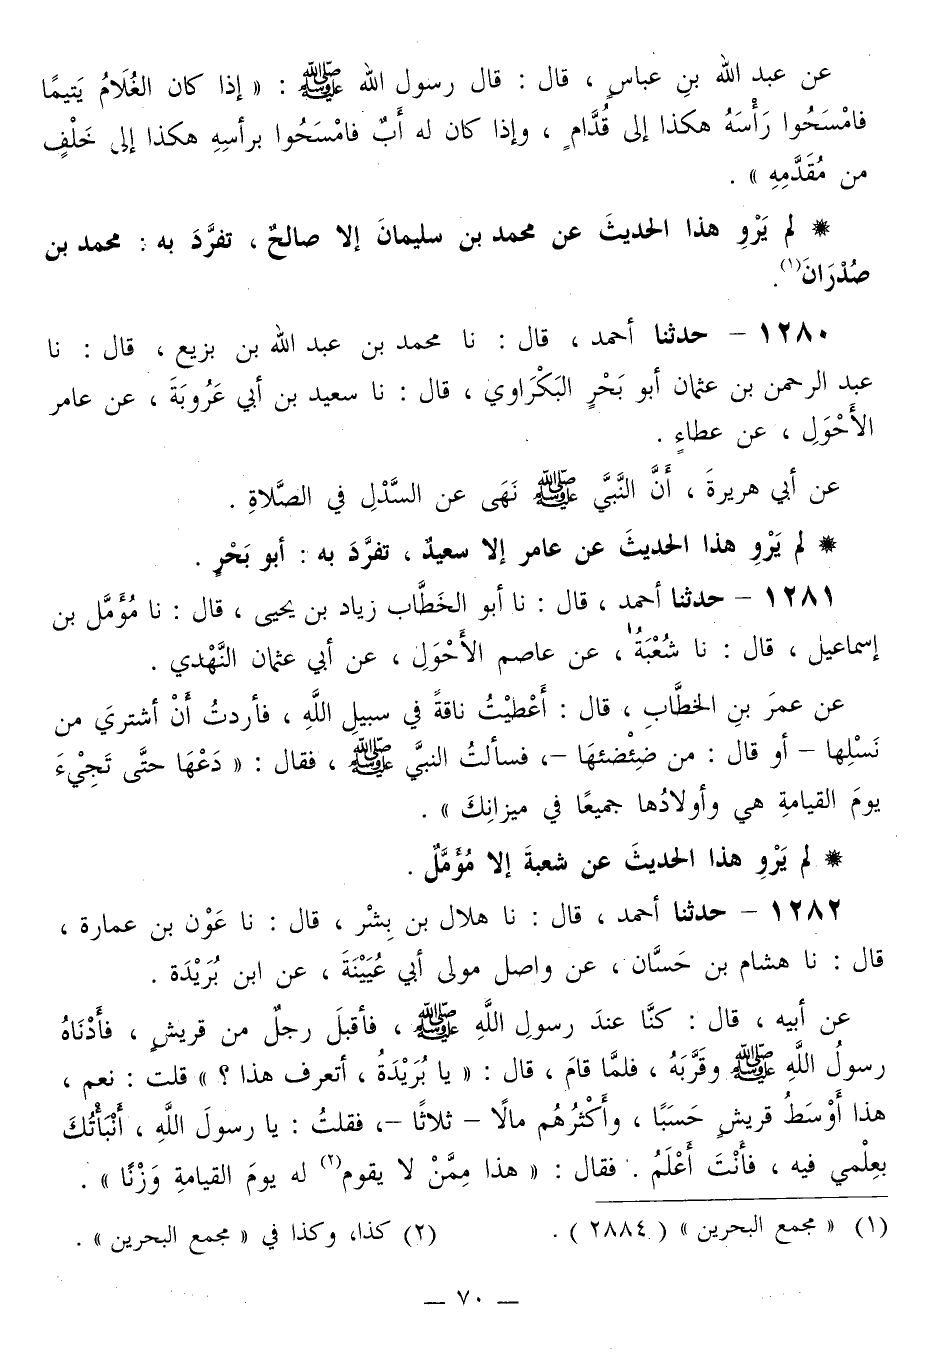 عن عبد الله بنِ عباسٍ ، قال : قال رسول الله ﷺ : « إذا كان الغُلَامُ يَتيمًا
فامْسَحُوا رَأْسَهُ هكذا إلى قُدَّامٍ ، وإذا كان له أَبٌ فامْسَحُوا برأسِهِ هكذا إلى خَلْفٍ
من مُقَدَّمِهِ » .
* لم يَرْوِ هذا الحديثَ عن محمد بن سليمانَ إلا صالحٌ ، تفرَّدَ به : محمد بن
صُدْرَانَ(١).
١٢٨٠ – حدثنا أحمد ، قال : نا محمد بن عبد الله بن بزيع ، قال : نا
عبد الرحمن بن عثمان أبو بَحْرٍ البَكْرَاوي ، قال : نا سعيد بن أبي عَرُوبَةَ ، عن عامر
الأَحْوَلِ ، عن عطاءٍ .
عن أبي هريرةَ ، أَنَّ النَّبيَّ ﷺ نَهَى عن السَّدْلِ في الصَّلاةِ .
* لم يَرْوِ هذا الحديثَ عن عامر إلا سعيدٌ ، تفرَّدَ به : أبو بَحْرٍ .
١٢٨١ – حدثنا أحمد ، قال : نا أبو الخَطَّاب زياد بن يحيى ، قال : نا مُؤَمَّل بن
إسماعيل ، قال : نا شُعْبَةُ ، عن عاصم الأَحْوَلِ ، عن أبي عثمان النَّهْدي .
عن عمرَ بنِ الخطَّابِ ، قال : أَعْطَيْتُ ناقةً في سبيلِ اللَّهِ ، فأردتُ أَنْ أشتريَ من
نَسْلِها – أو قال : من ضِئْضئهَا –، فسألتُ النبيَّ ﷺ ، فقال : « دَعْهَا حتَّى تَجِيْءَ
يومَ القيامةِ هي وأولادُها جميعًا في ميزانِكَ » .
* لم يَرْوِ هذا الحديثَ عن شعبةَ إلا مُؤَمَّلٌ .
١٢٨٢ – حدثنا أحمد ، قال : نا هلال بن بِشْر ، قال : نا عَوْن بن عمارة ،
قال : نا هشام بن حَسَّان ، عن واصل مولى أبي عُيَيْنَةَ ، عن ابن بُرَيْدَة .
عن أبيه ، قال : كنَّا عندَ رسولِ اللَّهِ ﷺ ، فأقبلَ رجلٌ من قريشٍ ، فأَدْنَاهُ
رسولُ اللَّهِ ﷺ وقَرَّبَهُ ، فلمَّا قامَ ، قال : « يا بُرَيْدَةُ ، أتعرف هذا ؟ » قلت : نعم ،
هذا أَوْسَطُ قريشٍ حَسَبًا ، وأَكْثرُهُم مالًا – ثلاثًا –، فقلتُ : يا رسولَ اللَّهِ ، أَنْبَأْتُكَ
بعِلْمي فيه ، فأَنْتَ أَعْلَمُ . فقال : « هذا مِمَّنْ لا يقوم(٢) له يومَ القيامةِ وَزْنًا » .
(١) « مجمع البحرين » ( ٢٨٨٤ ) . (٢) كذا، وكذا في « مجمع البحرين » .
– ٧٠ –